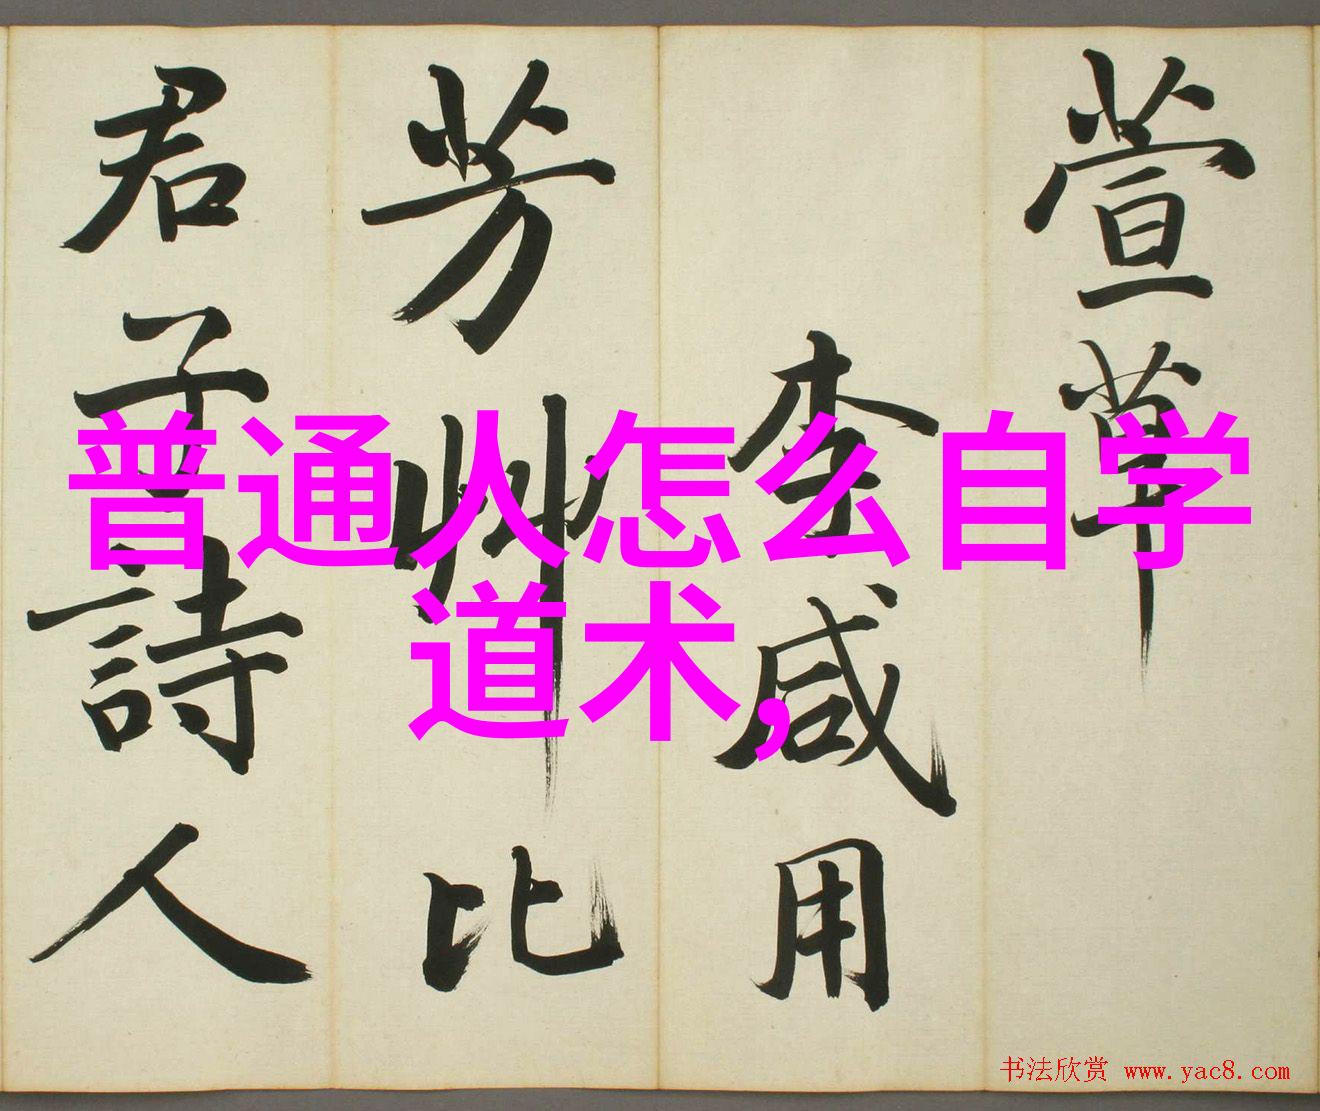 萱草
李咸用
芳艸比
君子詩人
普通人怎么自学
道术,
书法欣赏 www.yac8.com